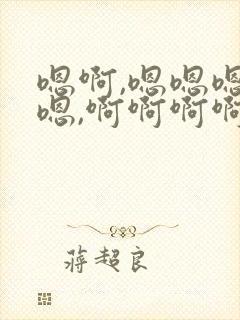 嗯啊,嗯嗯嗯
嗯,啊啊啊啊
蒋超良